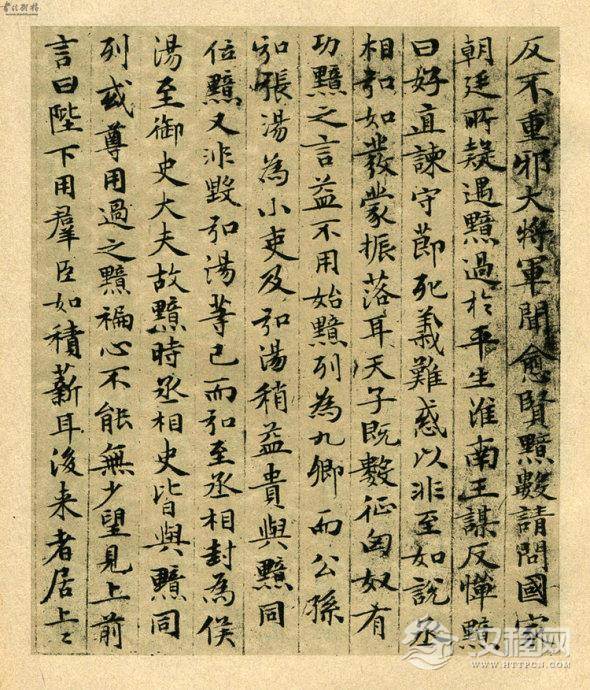 反不重邪大将軍聞愈賢黯數請問國家
朝廷所疑遇黯過於平生淮南王謀反憚黯
曰好直諫守莭死義難惑以非至如說丞
相弘如發蒙振落耳天子既數征匈奴有
功黯之言益不用始黯列為九卿而公孫
弘張湯為小吏及弘湯稍益貴與黯同
位黯又非毀弘湯等已而弘至丞相封為侯
湯至御史大夫故黯時丞相史皆與黯同
列或尊用過之黯褊心不能無少望見上前
言曰陛下用羣臣如積薪耳後来者居上〻
汉程网
WWW.HTTPCN.COM